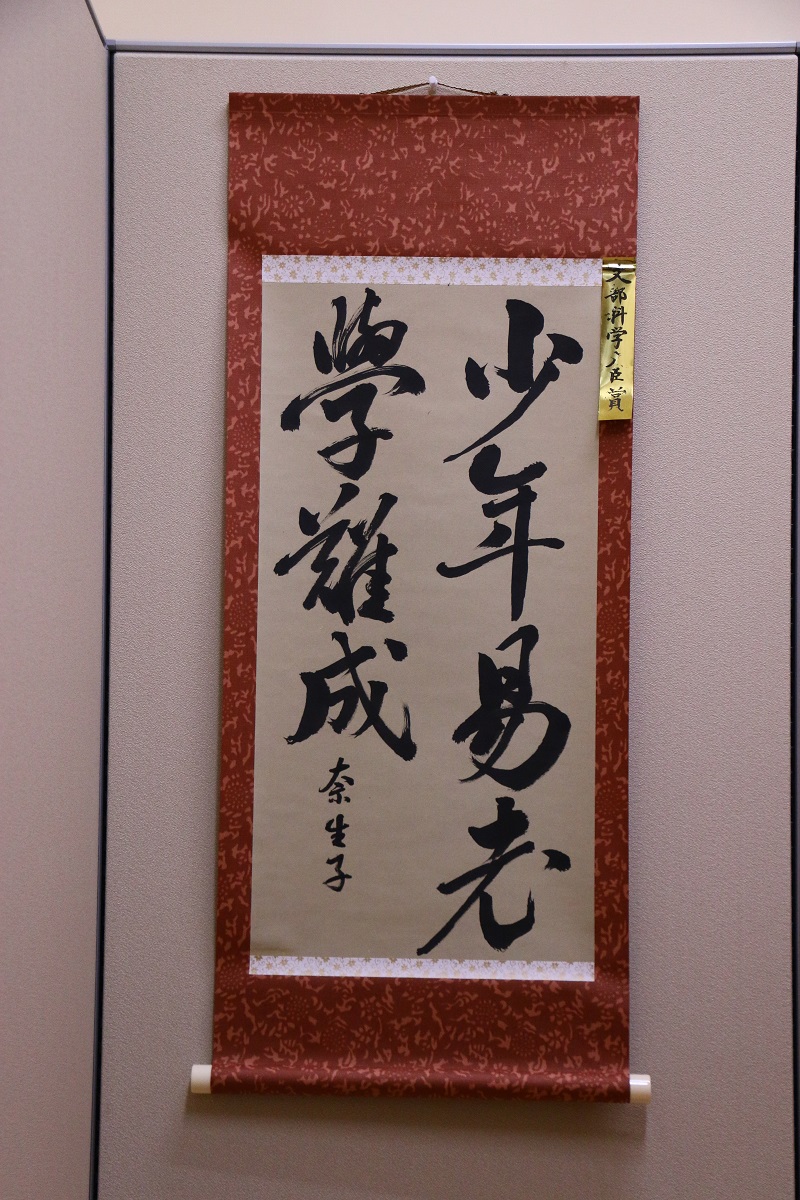 少年易老
學難成
奈生子
文部科学大臣賞